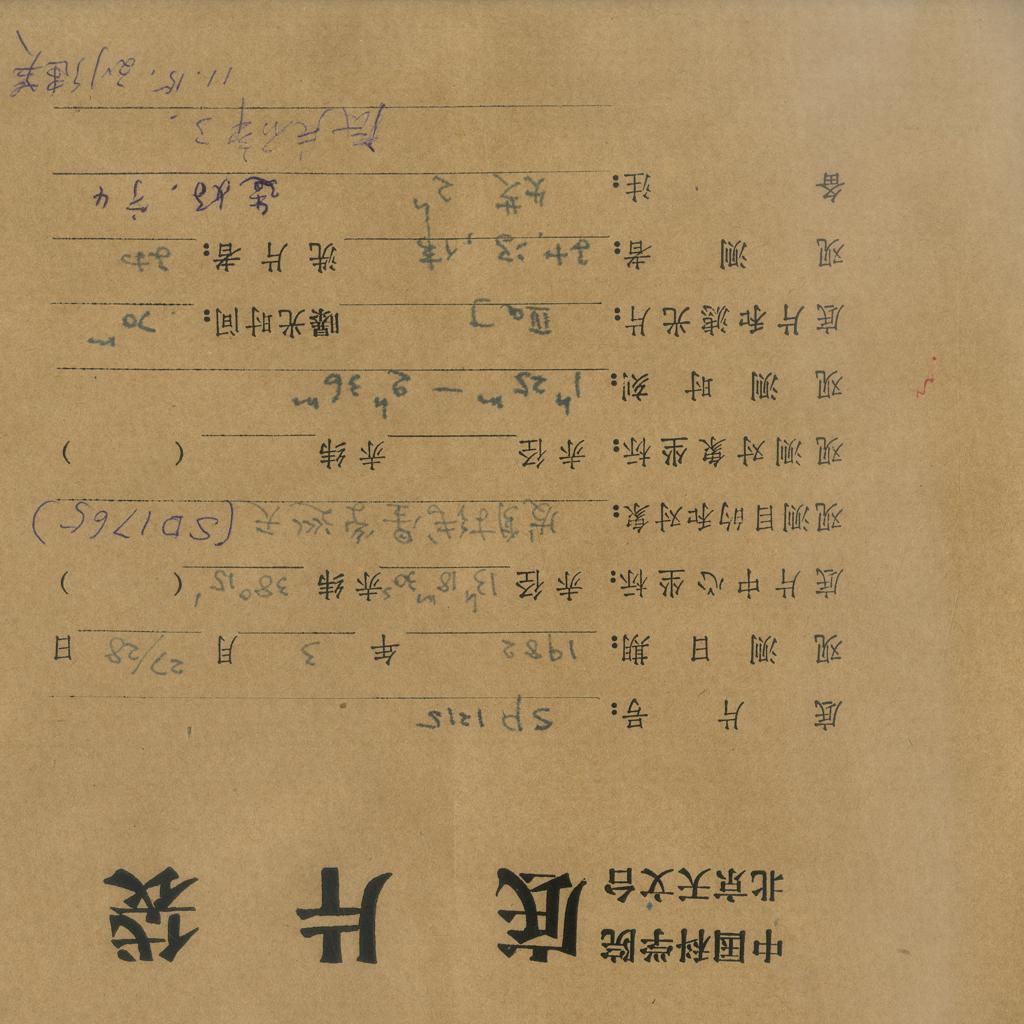 中国科学院
北京天文台
底片袋
底片号: SP1215
观测日期: 1982年3月27/28日
底片中心坐标: 赤径 13h18m30s 赤纬 38°15′ ( )
观测目的和对象: 发射线星系巡天 (SD1765)
观测对象坐标: 赤径 赤纬 ( )
观测时刻: 1h25m — 2h36m
底片和滤光片: ⅢaJ 曝光时间: 70m
观测者: 洗片者:
备注: 2h
11.15.